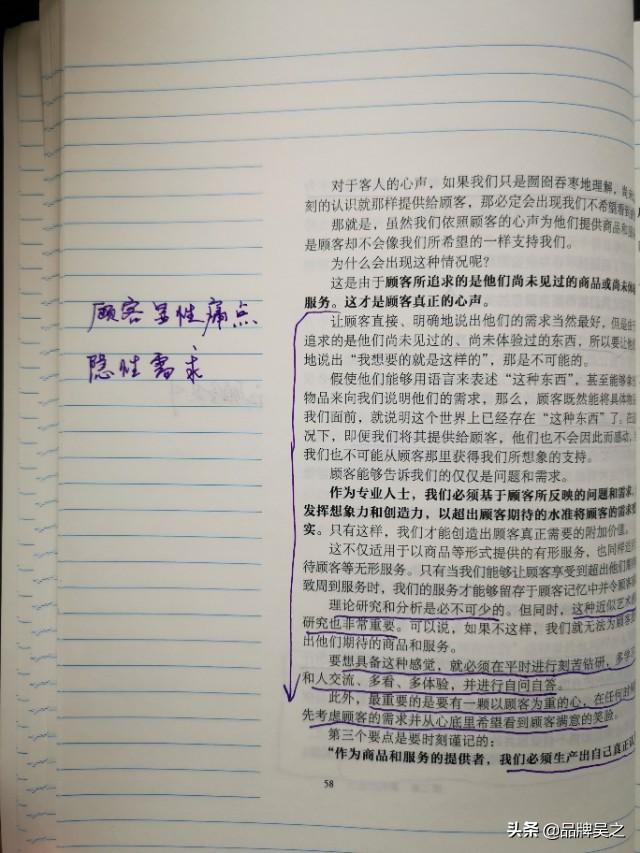 顾客显性痛点
隐性需求
对于客人的心声，如果我们只是囫囵吞枣地理解，尚未
刻的认识就那样提供给顾客，那必定会出现我们不希望看到的
那就是，虽然我们依照顾客的心声为他们提供商品和服
是顾客却不会像我们所希望的一样支持我们。
为什么会出现这种情况呢？
这是由于顾客所追求的是他们尚未见过的商品或尚未体
服务。这才是顾客真正的心声。
让顾客直接、明确地说出他们的需求当然最好，但是由
追求的是他们尚未见过的、尚未体验过的东西，所以要让他
地说出“我想要的就是这样的”，那是不可能的。
假使他们能够用语言来表述“这种东西”，甚至能够拿
物品来向我们说明他们的需求，那么，顾客既然能将具体物
我们面前，就说明这个世界上已经存在“这种东西”了。在
况下，即便我们将其提供给顾客，他们也不会因此而感动，
我们也不可能从顾客那里获得我们所想象的支持。
顾客能够告诉我们的仅仅是问题和需求。
作为专业人士，我们必须基于顾客所反映的问题和需求，
发挥想象力和创造力，以超出顾客期待的水准将顾客的需求
实。只有这样，我们才能创造出顾客真正需要的附加价值。
这不仅适用于以商品等形式提供的有形服务，也同样适
待顾客等无形服务。只有当我们能够让顾客享受到超出他们期
致周到服务时，我们的服务才能够留存于顾客记忆中并令顾客
理论研究和分析是必不可少的。但同时，这种近似艺术
研究也非常重要。可以说，如果不这样，我们就无法为顾客
出他们期待的商品和服务。
要想具备这种感觉，就必须在平时进行刻苦钻研，多学
和人交流、多看、多体验，并进行自问自答。
此外，最重要的是要有一颗以顾客为重的心，在任何
先考虑顾客的需求并从心底里希望看到顾客满意的笑脸。
第三个要点是要时刻谨记的：
“作为商品和服务的提供者，我们必须生产出自己真正
58
头条 @品牌吴之